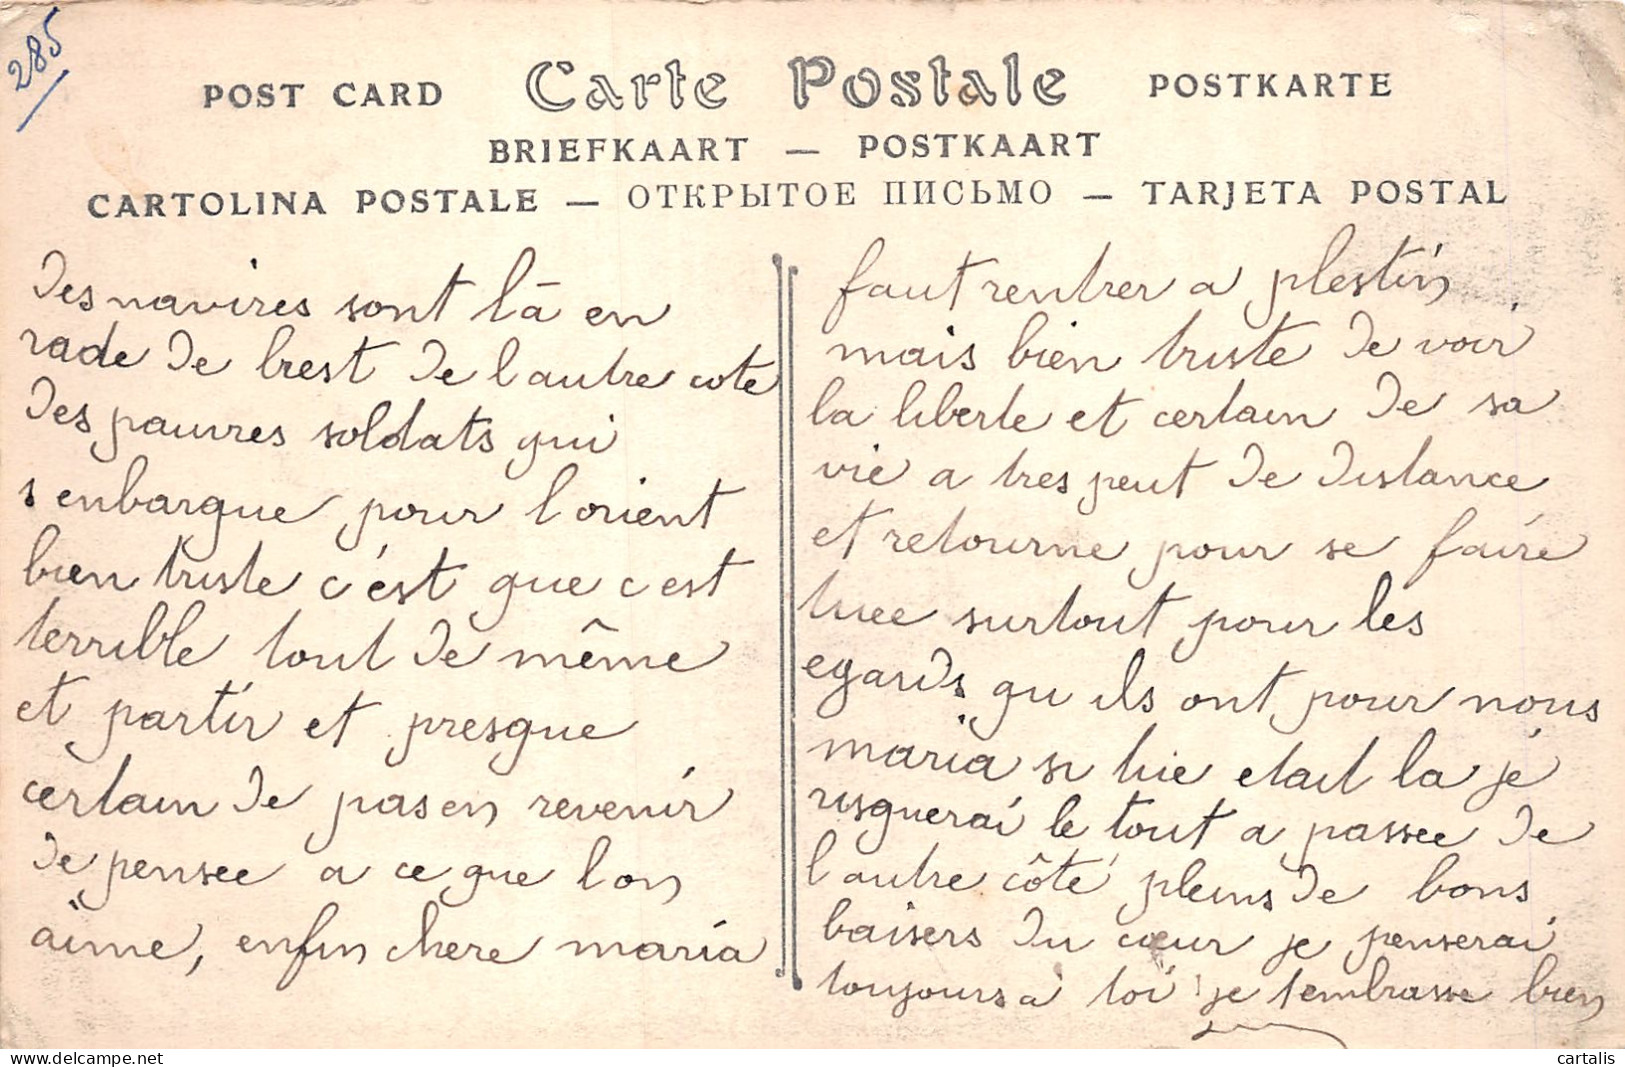 285
POST CARD Carte Postale POSTKARTE
BRIEFKAART — POSTKAART
CARTOLINA POSTALE — ОТКРЫТОЕ ПИСЬМО — TARJETA POSTAL
Des navires sont là en
rade de brest de lautre cote
des pauvres soldats qui
s enbarque pour lorient
bien triste c'est que c est
terrible tout de même
et partir et presque
certain de pas en revenir
de pensee a ce que lon
aime, enfin chere maria
faut rentrer a plestin
mais bien triste de voir
la liberte et certain de sa
vie a tres peut de distance
et retourne pour se faire
tuee surtout pour les
egards qu ils ont pour nous
maria si tu etait la je
risquerai le tout a passee de
lautre côté pleins de bons
baisers du cœur je penserai
toujours a toi je tembrasse bien
cartalis